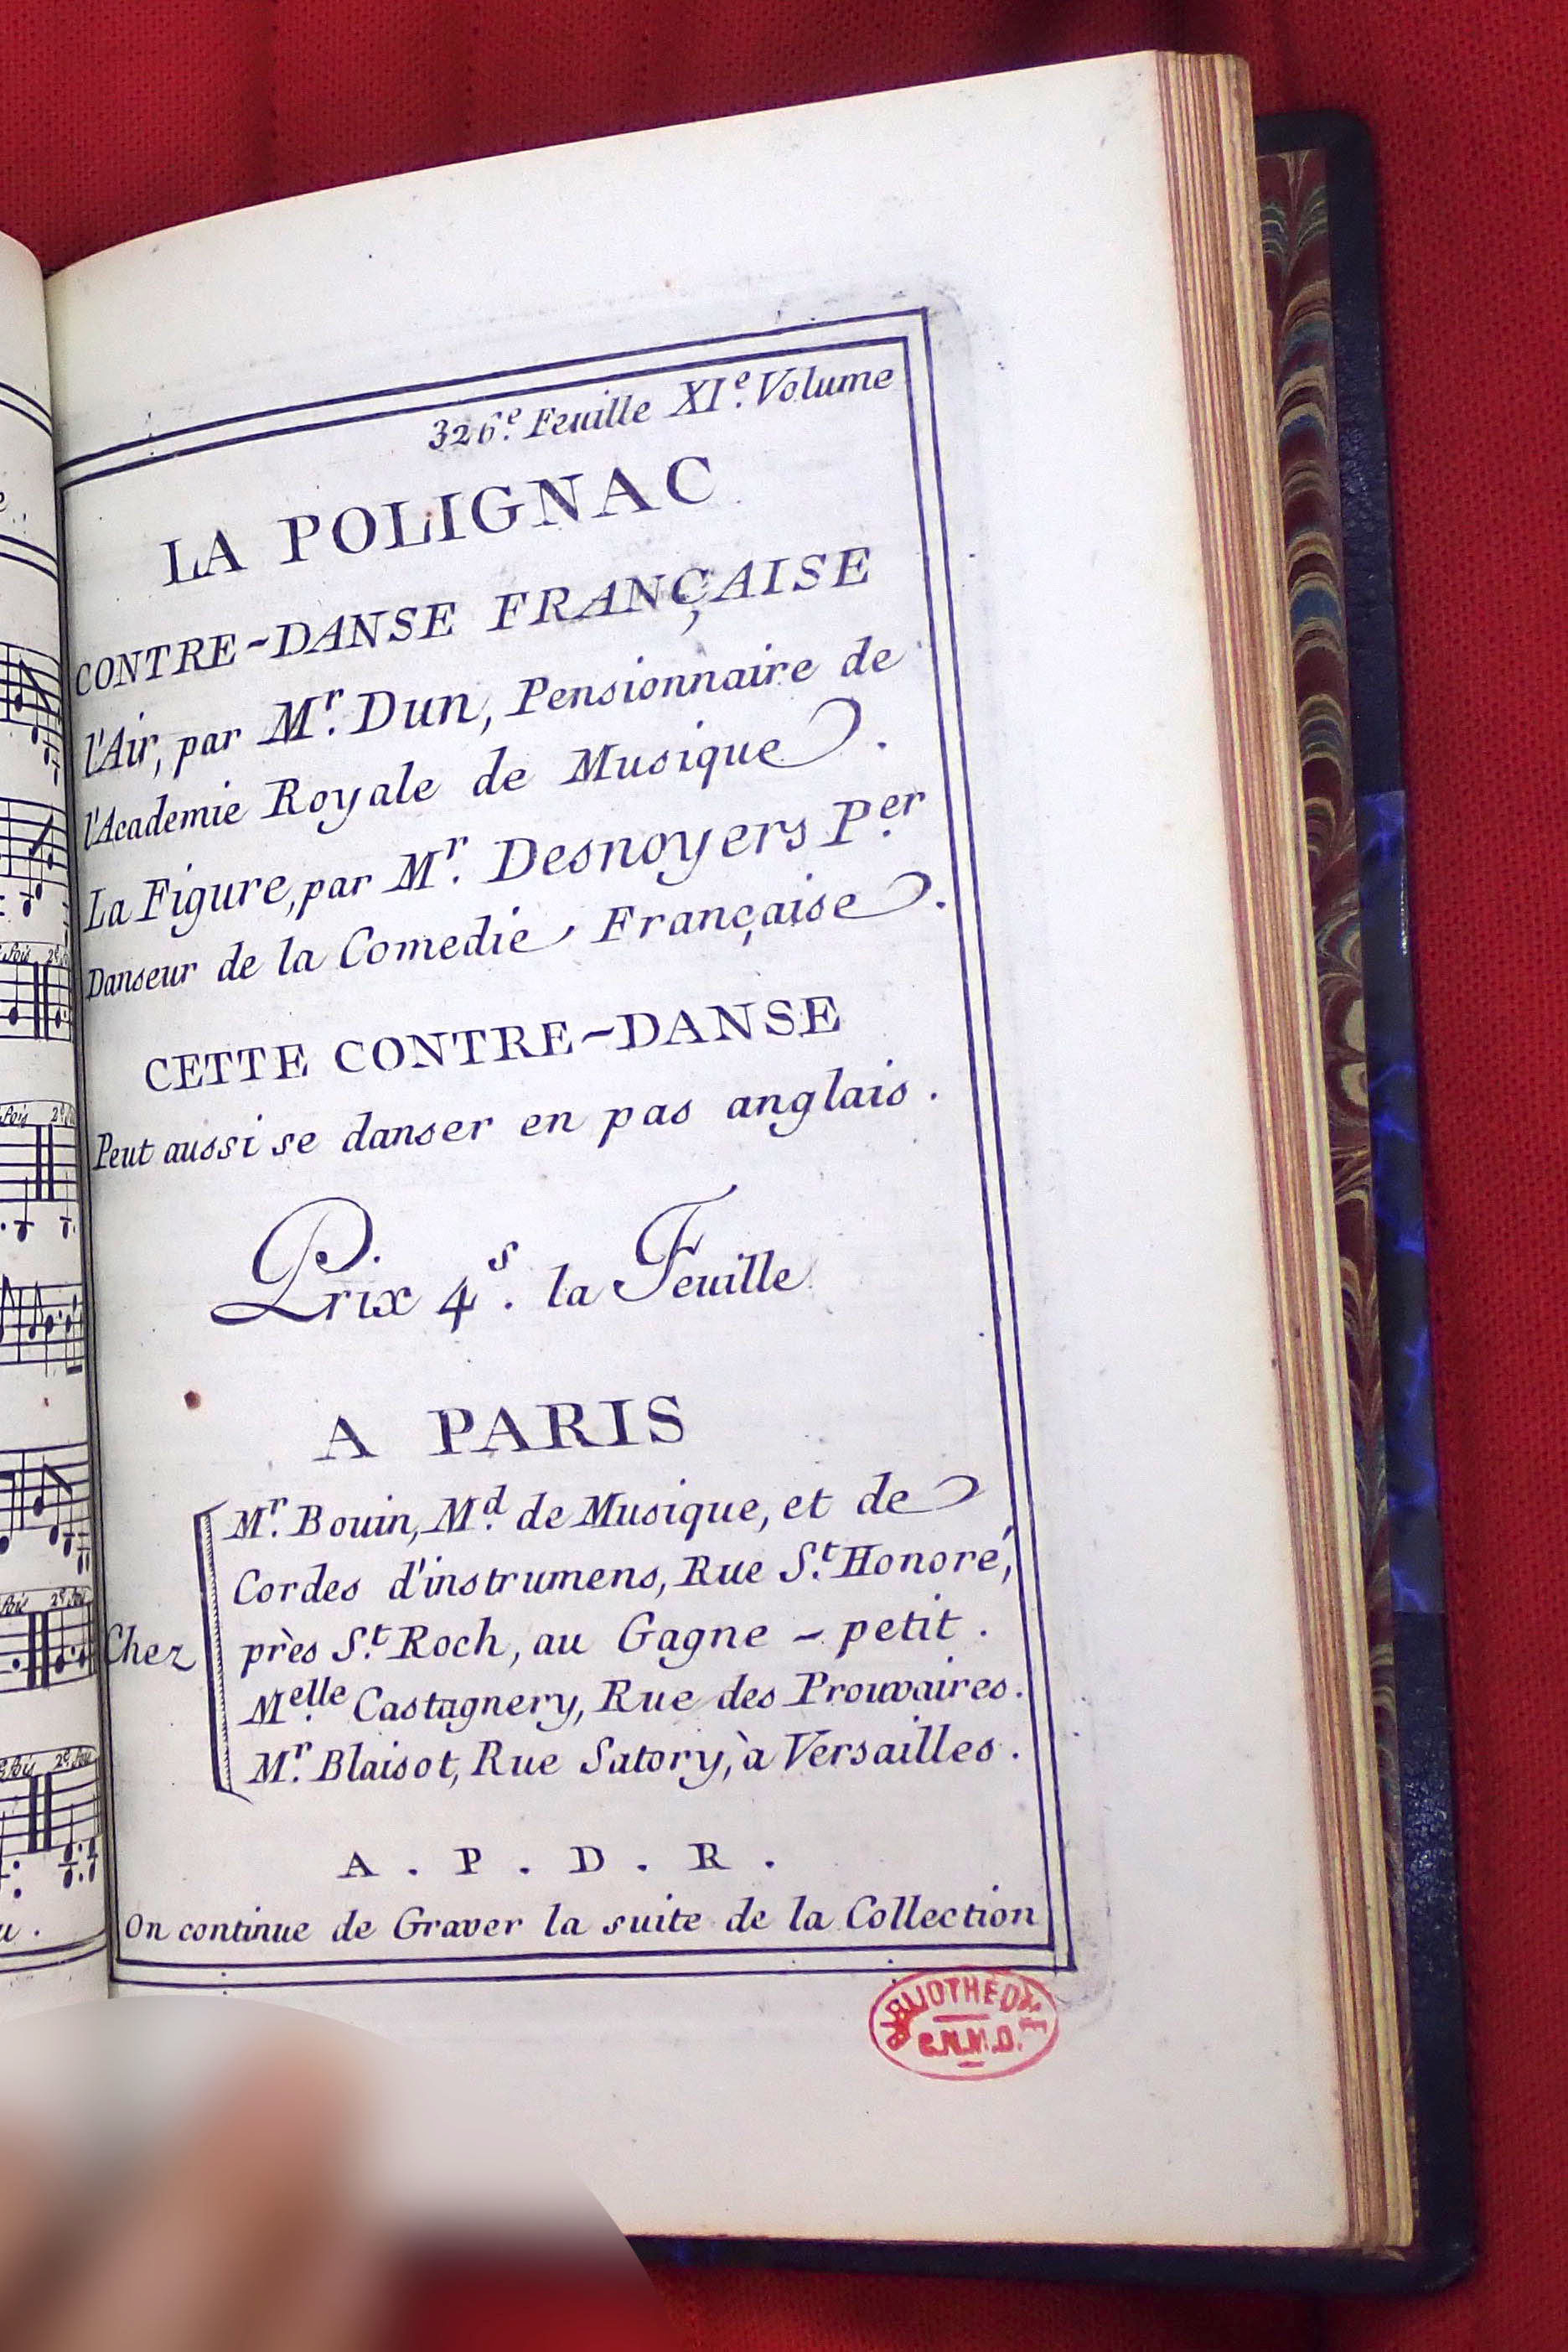 326.e Feuille XI.e Volume
LA POLIGNAC
CONTRE-DANSE FRANÇAISE
l'Air, par M.r Dun, Pensionnaire de
l'Academie Royale de Musique.
La Figure, par M.r Desnoyers P.er
Danseur de la Comedie Française.
CETTE CONTRE-DANSE
Peut aussi se danser en pas anglais.
Prix 4.s la Feuille
A PARIS
Chez
M.r Bouin, M.d de Musique, et de
Cordes d'instrumens, Rue S.t Honoré,
près S.t Roch, au Gagne-petit.
M.elle Castagnery, Rue des Prouvaires.
M.r Blaisot, Rue Satory, à Versailles.
A.P.D.R.
On continue de Graver la suite de la Collection
BIBLIOTHEQUE
C.N.M.D.